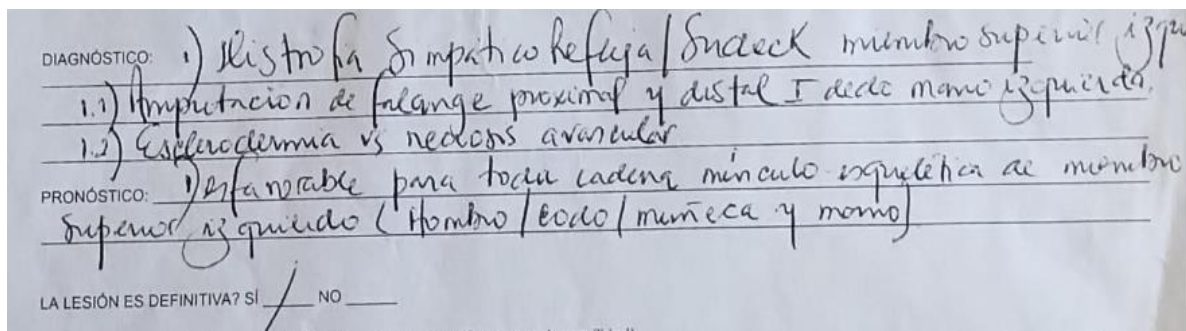 DIAGNÓSTICO: 1) Distrofia Simpático Refleja / Sudeck miembro superior izqu
1.1) Amputacion de falange proximal y distal I dedo mano izquierda.
1.2) Esclerodermia vs necrosis avascular
PRONÓSTICO: Desfavorable para toda cadena músculo esquelética de miembro
superior izquierdo (Hombro / codo / muñeca y mano)
LA LESIÓN ES DEFINITIVA? SÍ / NO